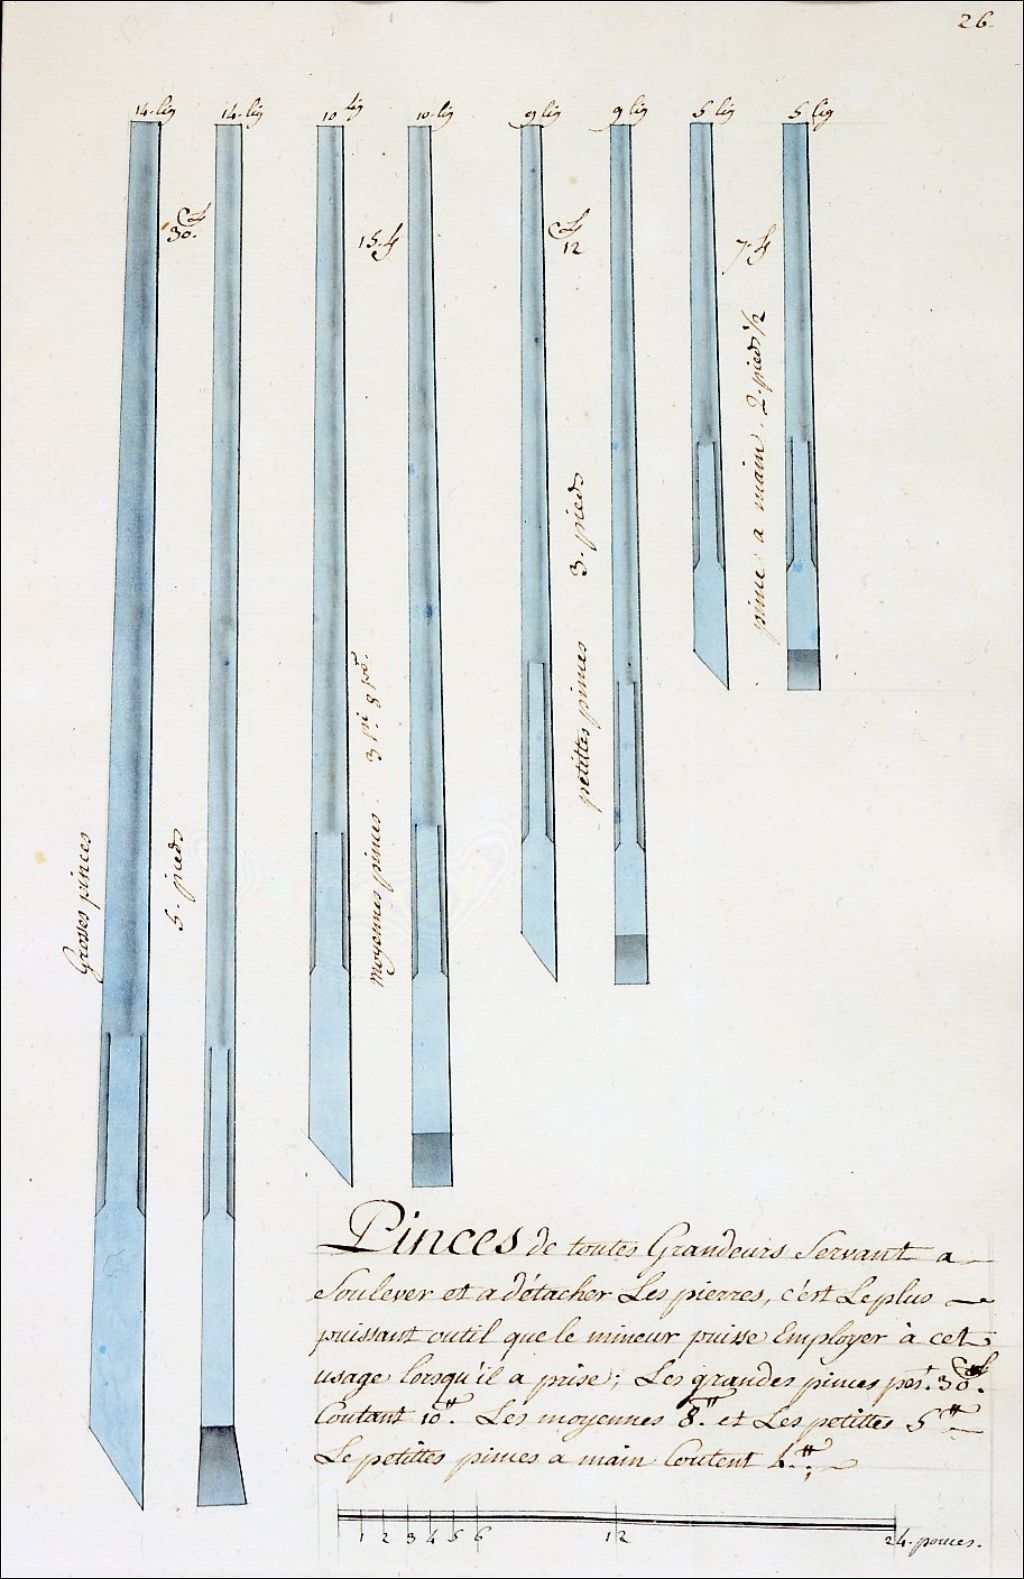 26.
14. lig
14. lig
10 lig
10. lig
9 lig
9 lig
5 lig
5 lig
30.
15. ℔
12
7. ℔
Grosses pinces
5. pieds
Moyennes pinces. 3 pi. 8 po.
petittes pinces 3. pieds
pince a main. 2. pieds 1/2
Pinces de toutes Grandeurs Servant a
Soulever et a détacher Les pierres, c'est Le plus
puissant outil que le mineur puisse Employer à cet
usage lorsqu'il a prise; Les grandes pinces pes.t 30 ℔.
Coutant 10.# Les moyennes 8.# et Les petittes 5#
Le petittes pinces a main Coutent 4.#;
1 2 3 4 5 6 12 24. pouces.